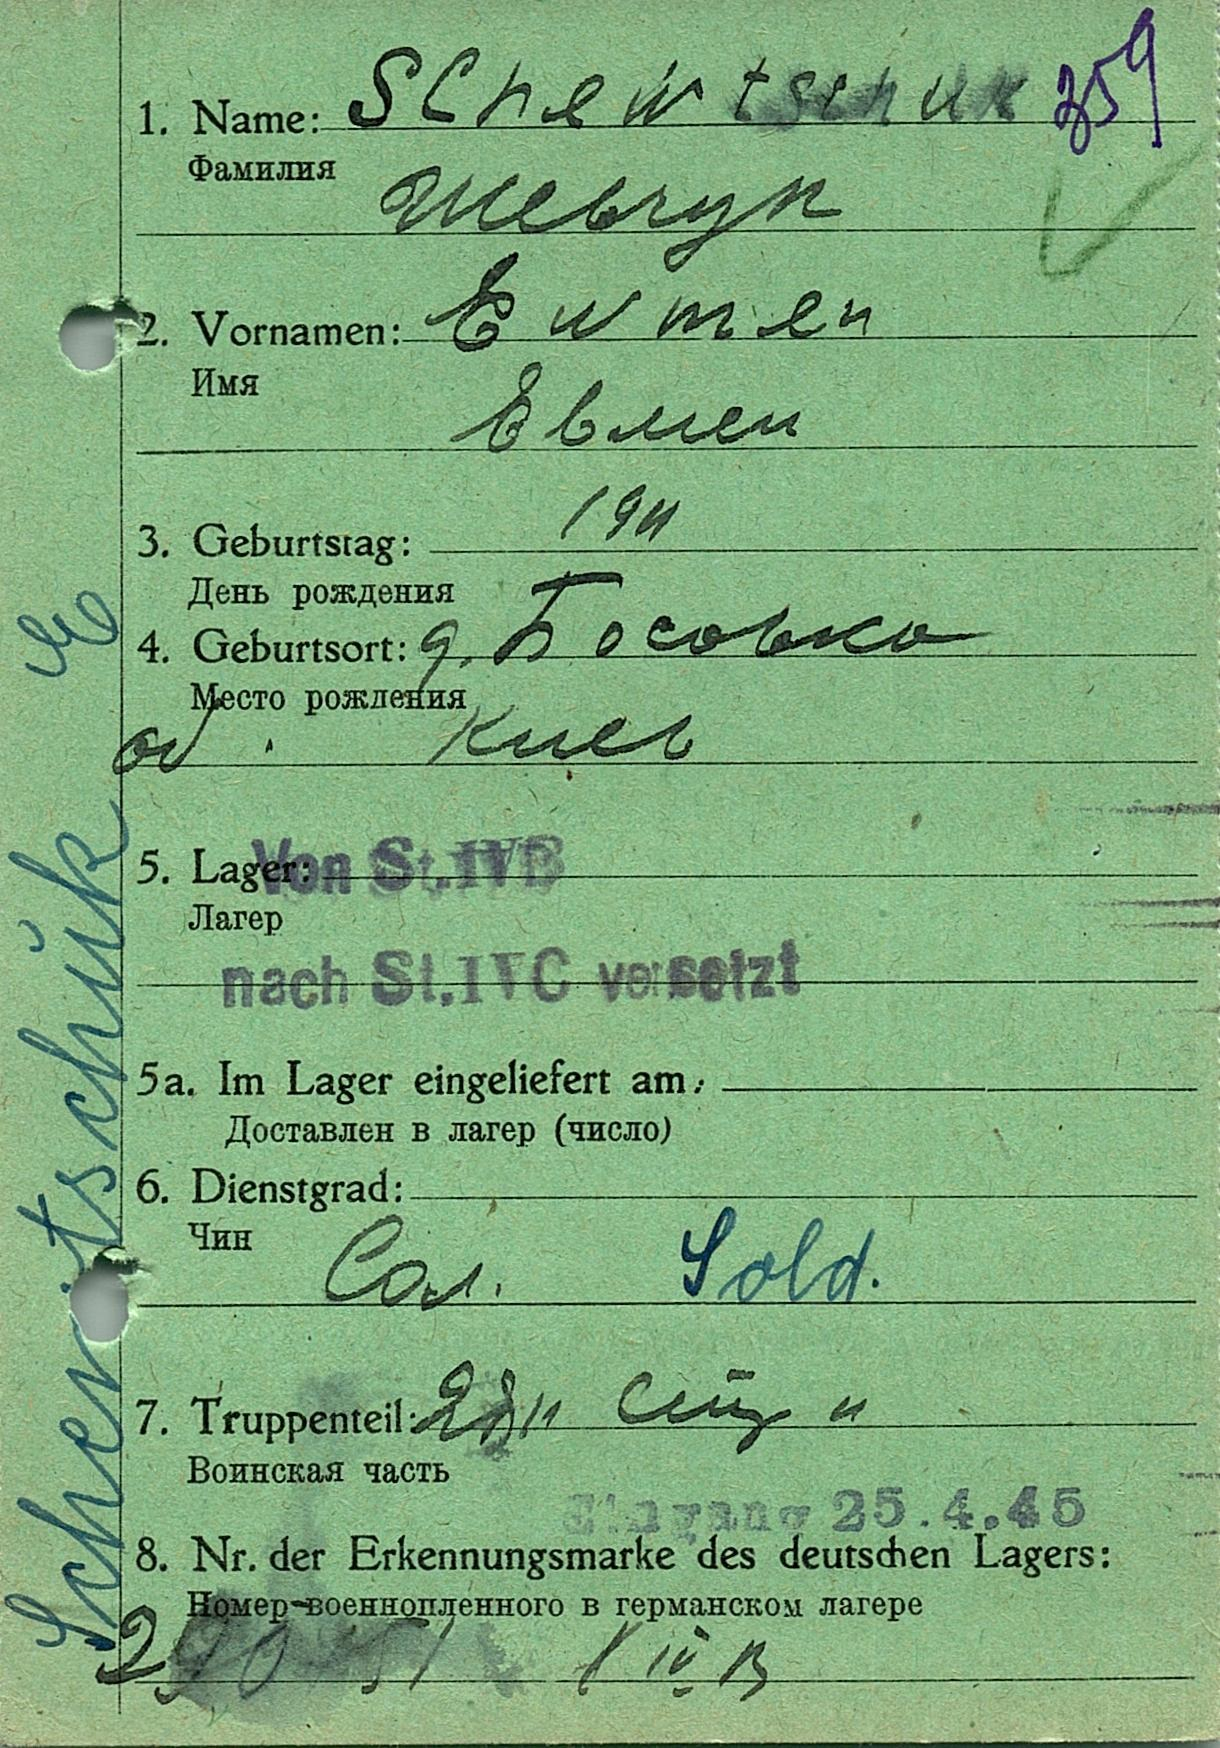 359
1. Name: Schewtschuk
Фамилия
Шевчук
2. Vornamen: Ewmen
Имя
Евмен
3. Geburtstag: 1911
День рождения
4. Geburtsort: д. Босовко
Место рождения
об. Киев
5. Lager: Von St.IVB
Лагер
nach St.IVC versetzt
5a. Im Lager eingeliefert am:
Доставлен в лагер (число)
6. Dienstgrad:
Чин
Сол. Sold.
7. Truppenteil:
Воинская часть
Eingang 25.4.45
8. Nr. der Erkennungsmarke des deutschen Lagers:
Номер военнопленного в германском лагере
IV B
Schewtschuk E